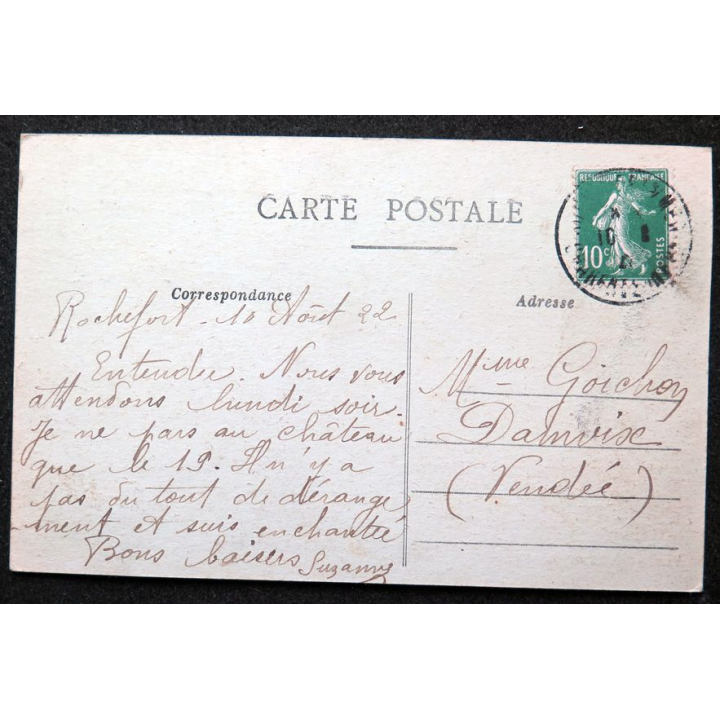 CARTE POSTALE
REPUBLIQUE FRANCAISE
10c
POSTES
10
Correspondance
Rochefort. 10 Août 22
Entendu. Nous vous
attendons lundi soir.
Je ne pars au château
que le 19. Il n'y a
pas du tout de dérange
-ment et suis enchantée
Bons baisers Suzanne
Adresse
Mme Goichon
Damvix
(Vendée)